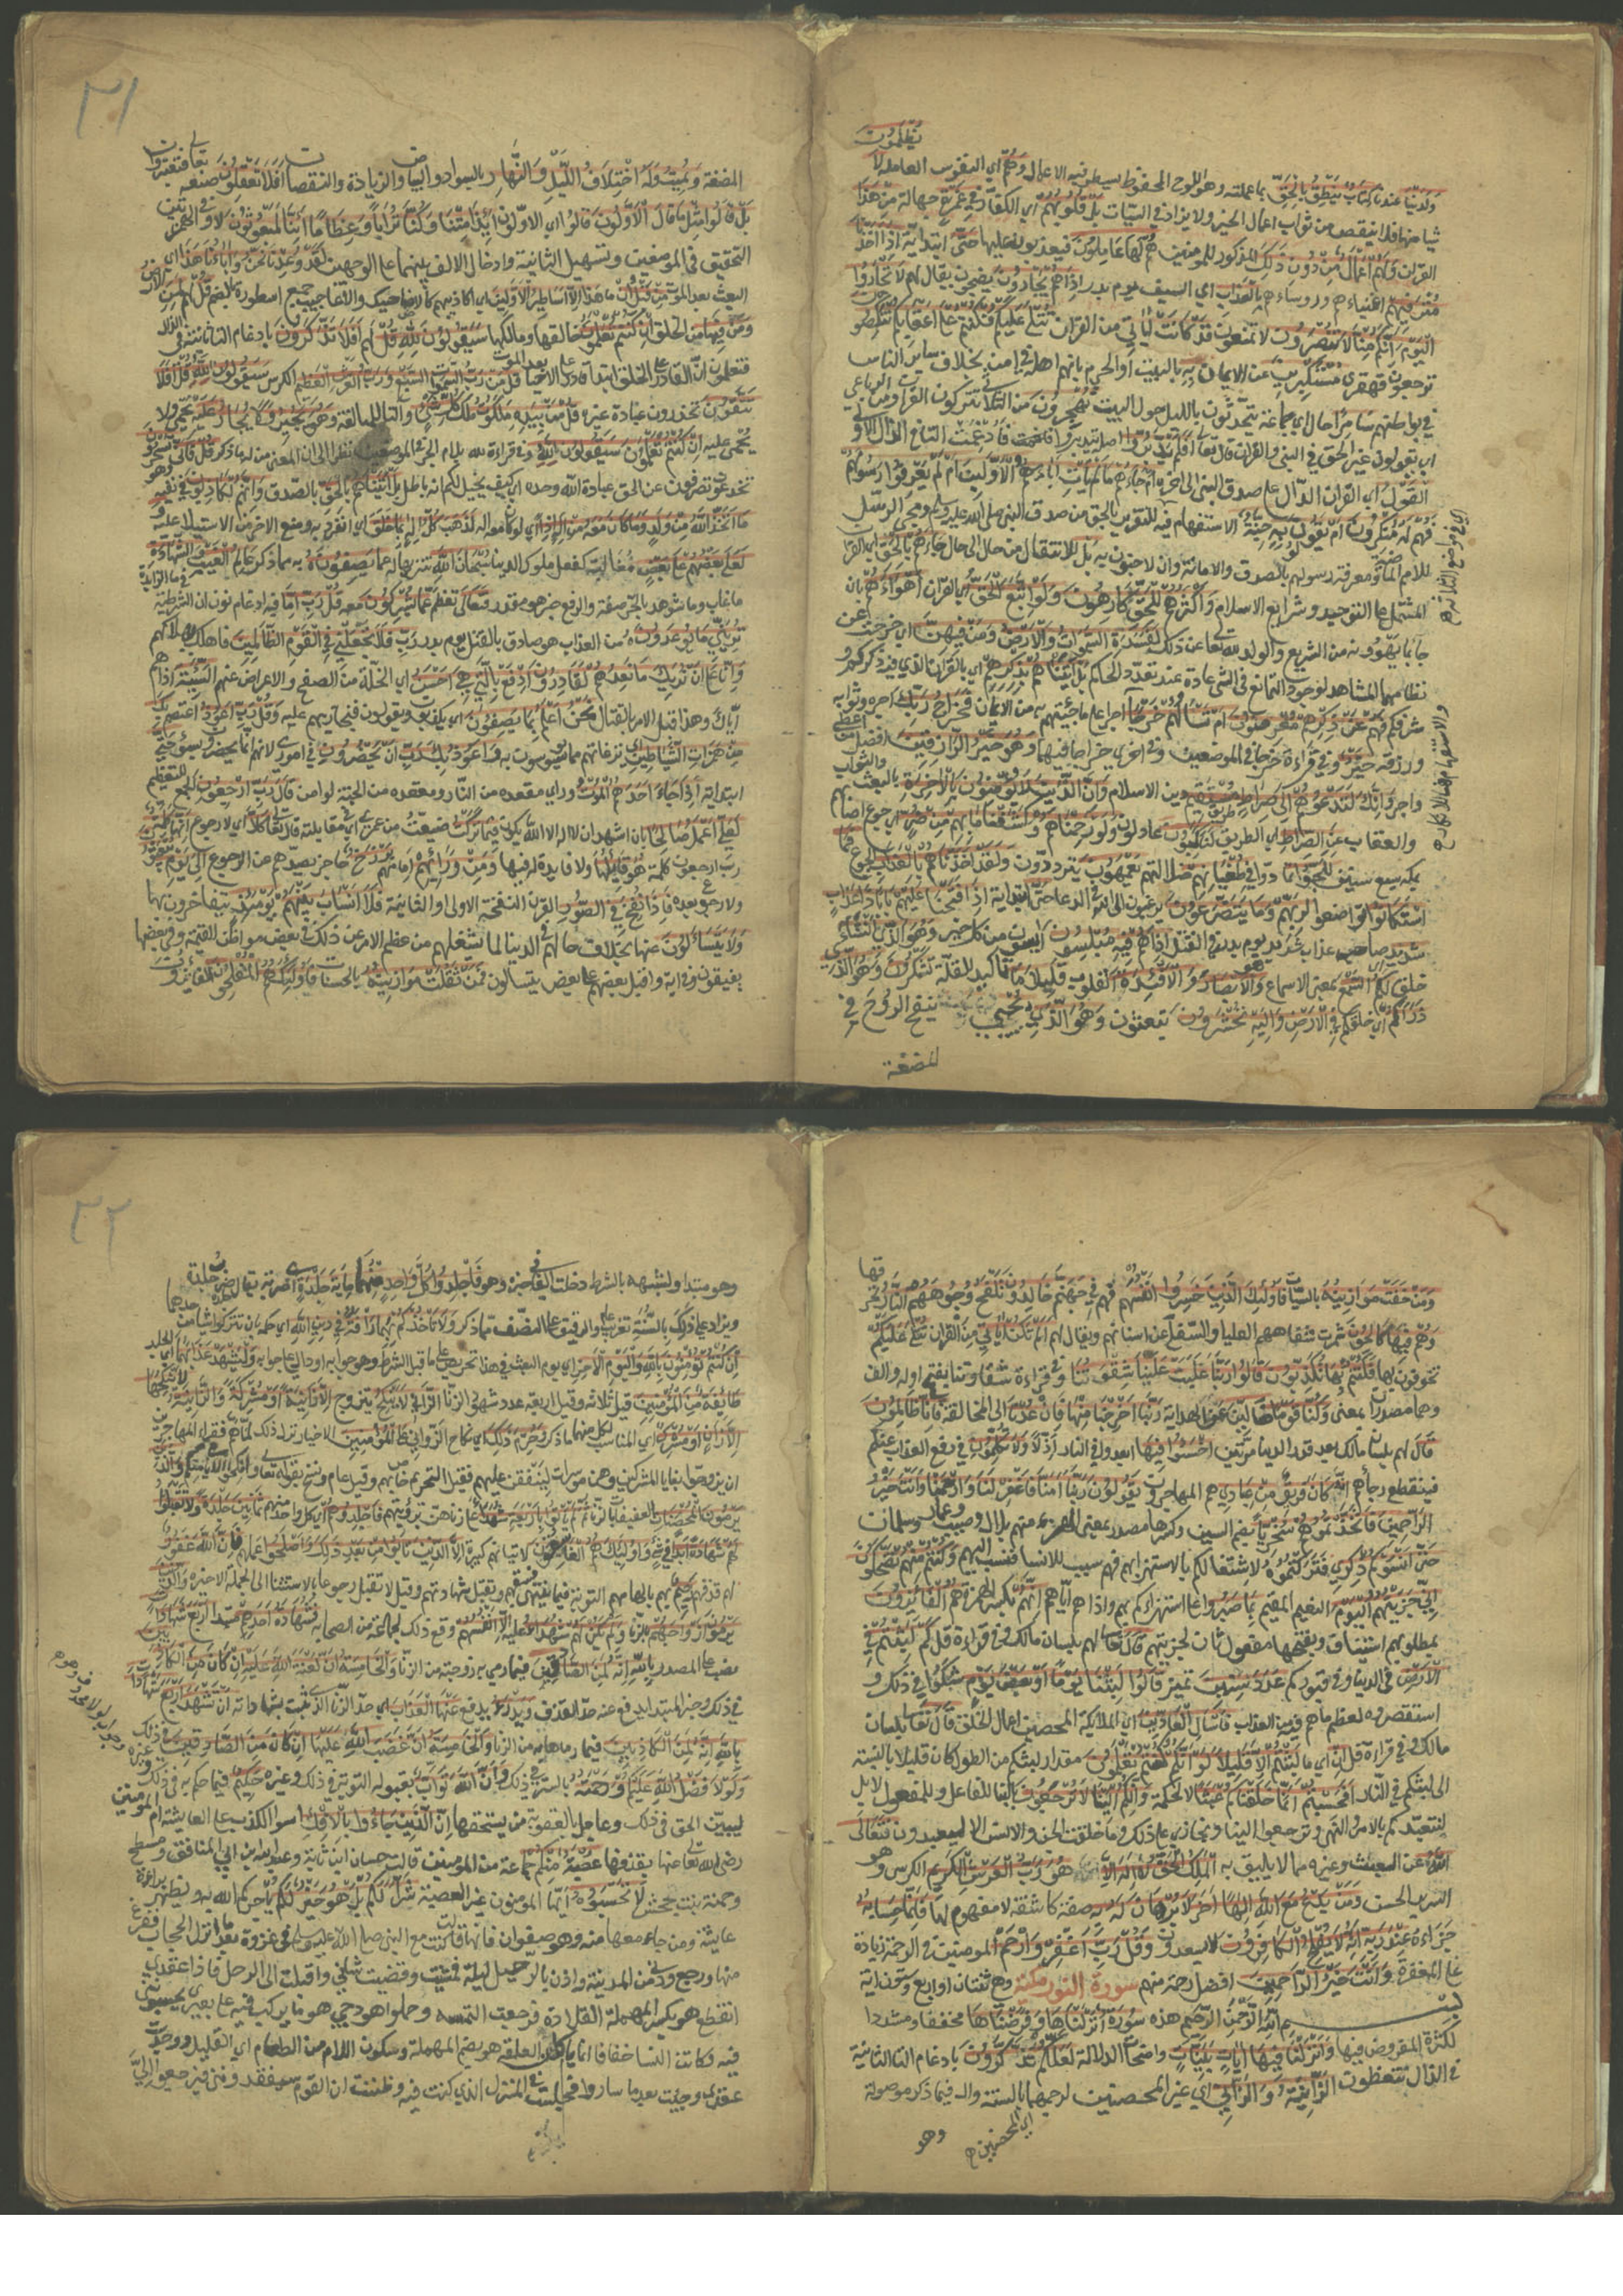 تظلمون
ولدينا عندنا كتاب ينطق بالحق بما عملته وهو اللوح المحفوظ يسطر فيه الاعمال وهم اي النفوس العاملة لا
شيا منها فلا ينقص من ثواب اعمال الخير ولا يزاد في السيات بل قلوبهم اي الكفار في غمرة جهالة من هذا
القران ولهم اعمال من دون ذلك المذكور للمومنين هم لها عاملون فيعذبون عليها حتى ابتدائية اذا اخذنا
مترفيهم اغنياءهم وروساءهم بالعذاب اي السيف يوم بدر اذا هم يجارون يضجون يقال لهم لا تجاروا
اليوم انكم منا لا تنصرون لا تمنعون قد كانت اياتي من القران تتلى عليكم فكنتم على اعقابكم تنكصون
ترجعون قهقرى مستكبرين عن الايمان به بالبيت او الحرم بانهم اهله في امن بخلاف ساير الناس
في مواطنهم سامرا حال اي جماعة يتحدثون بالليل حول البيت تهجرون من الثلاثي تتركون القران ومن الرباعي
اي تقولون غير الحق في النبي والقران قال تعالى افلم يدبروا اصله يتدبروا فادغمت التا في الدال
القول اي القران الدال على صدق النبي ام جاءهم ما لم يات اباءهم الاولين ام لم يعرفوا رسولهم
فهم له منكرون ام يقولون به جنة الاستفهام فيه للتقرير بالحق من صدق النبي صلى الله عليه وسلم ومجي الرسل
للامم الماضية ومعرفة رسولهم بالصدق والامانة وان لا جنون به بل للانتقال من حال الى حال جاءهم بالحق اي القران
المشتمل على التوحيد وشرايع الاسلام واكثرهم للحق كارهون ولو اتبع الحق اي القران اهواءهم بان
جا بما يهوونه من الشريك والولد لله تعالى عن ذلك لفسدت السموات والارض ومن فيهن اي خرجت عن
نظامها المشاهد لوجود التمانع في الشي عادة عند تعدد الحاكم بل اتيناهم بذكرهم اي بالقران الذي فيه ذكرهم و
شرفهم فهم عن ذكرهم معرضون ام تسالهم خرجا اجرا على ما جئتهم به من الايمان فخراج ربك اجره وثوابه
ورزقه خير وفي قراءة خرجا في الموضعين وفي اخرى خراجا فيهما وهو خير الرازقين افضل من اعطى
واجر وانك لتدعوهم الى صراط طريق مستقيم دين الاسلام وان الذين لا يومنون بالاخرة بالبعث والثواب
والعقاب عن الصراط اي الطريق لناكبون عادلون ولو رحمناهم وكشفنا ما بهم من ضر اي جوع اصابهم
بمكة سبع سنين للجوا تمادوا في طغيانهم ضلالتهم يعمهون يترددون ولقد اخذناهم بالعذاب الجوع فما
استكانوا تواضعوا لربهم وما يتضرعون يرغبون الى الله في الدعا حتى ابتدائية اذا فتحنا عليهم بابا ذا عذاب
شديد صاحب عذاب شديد يوم بدر بالقتل اذا هم فيه مبلسون ايسون من كل خير وهو الذي انشا
خلق لكم السمع بمعنى الاسماع والابصار والافئدة القلوب قليلا ما تاكيد للقلة تشكرون وهو الذي
ذراكم اي خلقكم في الارض واليه تحشرون تبعثون وهو الذي يحيي ينفخ الروح في
المضغة
٣١
المضغة ويميت وله اختلاف الليل والنهار بالسواد والبياض والزيادة والنقصان افلا تعقلون صنعه تعالى فتعتبرون
بل قالوا مثل ما قال الاولون قالوا اي الاولون ائذا متنا وكنا ترابا وعظاما ائنا لمبعوثون لا وفي الهمزتين
التحقيق في الموضعين وتسهيل الثانية وادخال الالف بينهما على الوجهين لقد وعدنا نحن واباؤنا هذا اي
البعث بعد الموت من قبل ان ما هذا الا اساطير الاولين اي اكاذيبهم كالاضاحيك والاعاجيب جمع اسطورة بالضم قل لهم لمن الارض
ومن فيها من الخلق ان كنتم تعلمون خالقها ومالكها سيقولون لله قل لهم افلا تذكرون بادغام التا الثانية في الذال
فتعلمون ان القادر على الخلق ابتدا قادر على الاحيا بعد الموت قل من رب السموات السبع ورب العرش العظيم الكرسي سيقولون الله قل افلا
تتقون تحذرون عبادة غيره قل من بيده ملكوت ملك كل شيء والتا للمبالغة وهو يجير ولا يجار عليه يحمي ولا
يحمى عليه ان كنتم تعلمون سيقولون الله وفي قراءة لله بلام الجر في الموضعين نظرا الى ان المعنى من له ما ذكر قل فاني تسحرون
تخدعون تصرفون عن الحق عبادة الله وحده اي كيف يخيل لكم انه باطل بل اتيناهم بالحق بالصدق وانهم لكاذبون في نفيه وهو
ما اتخذ الله من ولد وما كان معه من اله اذا اي لو كان معه اله لذهب كل اله بما خلق اي انفرد به ومنع الاخر من الاستيلا عليه
لعلا بعضهم على بعض مغالبة كفعل ملوك الدنيا سبحان الله تنزيها له عما يصفون به مما ذكر عالم الغيب والشهادة
ما غاب وما شوهد بالجر صفة والرفع خبر هو مقدر فتعالى تعظم عما يشركون معه قل رب اما فيه ادغام نون ان الشرطية في ما الزايدة
تريني ما يوعدون من العذاب هو صادق بالقتل يوم بدر رب فلا تجعلني في القوم الظالمين فاهلك بهلاكهم
وانا على ان نريك ما نعدهم لقادرون ادفع بالتي هي احسن اي الخلة من الصفح والاعراض عنهم السيئة اذاهم
اياك وهذا قبل الامر بالقتال نحن اعلم بما يصفون اي يكذبون ويقولون فنجازيهم عليه وقل رب اعوذ اعتصم بك
من همزات الشياطين نزغاتهم مما يوسوسون به واعوذ بك رب ان يحضرون في اموري لانهم انما يحضرون بسوء حتى
ابتدائية اذا جاء احدهم الموت وراى مقعده من النار ومقعده من الجنة لو امن قال رب ارجعون الجمع للتعظيم
لعلي اعمل صالحا بان اشهد ان لا اله الا الله يكون فيما تركت ضيعت من عمري اي في مقابلته قال تعالى كلا اي لا رجوع انها اي
رب ارجعون كلمة هو قايلها ولا فايدة له فيها ومن ورائهم امامهم برزخ حاجز يصدهم عن الرجوع الى يوم يبعثون
ولا رجوع بعده فاذا نفخ في الصور القرن النفخة الاولى او الثانية فلا انساب بينهم يومئذ يتفاخرون بها
ولا يتساءلون عنها بخلاف حالهم في الدنيا لما يشغلهم من عظم الامر عن ذلك في بعض مواطن القيمة وفي بعضها
يفيقون وفي اية واقبل بعضهم على بعض يتسالون فمن ثقلت موازينه بالحسنات فاولئك هم المفلحون الفائزون
ومن خفت موازينه بالسيات فاولئك الذين خسروا انفسهم فهم في جهنم خالدون تلفح وجوههم النار تحرقها
وهم فيها كالحون شمرت شفاههم العليا والسفلى عن اسنانهم ويقال لهم الم تكن اياتي من القران تتلى عليكم
تخوفون بها فكنتم بها تكذبون قالوا ربنا غلبت علينا شقوتنا وفي قراءة شقاوتنا بفتح اوله والف
وهما مصدران بمعنى وكنا قوما ضالين عن الهداية ربنا اخرجنا منها فان عدنا الى المخالفة فانا ظالمون
قال لهم بلسان مالك بعد قدر الدنيا مرتين اخسئوا فيها ابعدوا في النار اذلا ولا تكلمون في رفع العذاب عنكم
فينقطع رجاءهم انه كان فريق من عبادي هم المهاجرون يقولون ربنا امنا فاغفر لنا وارحمنا وانت خير
الراحمين فاتخذتموهم سخريا بضم السين وكسرها مصدر بمعنى الهزء منهم بلال وصهيب وعمار وسلمان
حتى انسوكم ذكري فتركتموه لاشتغالكم بالاستهزا بهم فهم سبب للانسا فنسب اليهم وكنتم منهم تضحكون
اني جزيتهم اليوم النعيم المقيم بما صبروا على استهزاكم بهم واذاكم اياهم انهم بكسر الهمزة هم الفائزون
بمطلوبهم استئناف وبفتحها مفعول ثان لجزيتهم قال تعالى لهم بلسان مالك وفي قراءة قل كم لبثتم في
الارض في الدنيا وفي قبوركم عدد سنين تمييز قالوا لبثنا يوما او بعض يوم شكوا في ذلك و
استقصروه لعظم ما هم فيه من العذاب فاسال العادين اي الملائكة المحصين اعمال الخلق قال تعالى بلسان
مالك وفي قراءة قل ان اي ما لبثتم الا قليلا لو انكم كنتم تعلمون مقدار لبثكم من الطول كان قليلا بالنسبة
الى لبثكم في النار افحسبتم انما خلقناكم عبثا لا لحكمة وانكم الينا لا ترجعون بالبنا للفاعل وللمفعول لا بل
لنتعبدكم بالامر والنهي وترجعوا الينا ونجازي على ذلك وما خلقت الجن والانس الا ليعبدون فتعالى
الله عن العبث وغيره مما لا يليق به الملك الحق لا اله الا هو رب العرش الكريم الكرسي وهو
السرير الحسن ومن يدع مع الله الها اخر لا برهان له به صفة كاشفة لا مفهوم لها فانما حسابه
جزاءه عند ربه انه لا يفلح الكافرون لا يسعدون وقل رب اغفر وارحم المومنين في الرحمة زيادة
على المغفرة وانت خير الراحمين افضل رحمة منهم سورة النور مكية وهي ثنتان او اربع وستون اية
بسم الله الرحمن الرحيم هذه سورة انزلناها وفرضناها مخففا ومشددا
لكثرة المفروض فيها وانزلنا فيها ايات بينات واضحات الدلالة لعلكم تذكرون بادغام التا الثانية
في الذال تتعظون الزانية والزاني اي غير المحصنين لرجمهما بالسنة وال فيما ذكر موصولة
اي المحصنين
وهو
٣٢
وهو مبتدا ولشبهه بالشرط دخلت الفا في خبره وهو فاجلدوا كل واحد منهما ماية جلدة اي ضربة يقال جلده ضرب جلده
ويزاد على ذلك بالسنة تغريب عام والرقيق على النصف مما ذكر ولا تاخذكم بهما رافة في دين الله اي حكمه بان تتركوا شيا من حدهما
ان كنتم تومنون بالله واليوم الاخر اي يوم البعث في هذا تحريض على ما قبل الشرط وهو جوابه او دال على جوابه وليشهد عذابهما اي الجلد
طايفة من المومنين قيل ثلاثة وقيل اربعة عدد شهود الزنا الزاني لا ينكح يتزوج الا زانية او مشركة والزانية لا ينكحها
الا زان او مشرك اي المناسب لكل منهما ما ذكر وحرم ذلك اي نكاح الزواني على المومنين الاخيار نزل ذلك لما هم فقراء المهاجرين
ان يتزوجوا بغايا المشركين وهن موسرات لينفقن عليهم فقيل التحريم خاص بهم وقيل عام ونسخ بقوله تعالى وانكحوا الايامى منكم والذين
يرمون المحصنات العفيفات بالزنا ثم لم ياتوا باربعة شهداء على زناهن برؤيتهم فاجلدوهم اي كل واحد منهم ثمانين جلدة ولا تقبلوا
لهم شهادة ابدا في شيء واولئك هم الفاسقون لاتيانهم كبيرة الا الذين تابوا من بعد ذلك واصلحوا عملهم فان الله غفور
لهم قذفهم رحيم بهم بالهامهم التوبة فبها ينتهي فسقهم وتقبل شهادتهم وقيل لا تقبل رجوعا بالاستثنا الى الجملة الاخيرة والذين
يرمون ازواجهم بالزنا ولم يكن لهم شهداء عليه الا انفسهم وقع ذلك لجماعة من الصحابة فشهادة احدهم مبتدا اربع شهادات
نصب على المصدر بالله انه لمن الصادقين فيما رمى به زوجته من الزنا والخامسة ان لعنت الله عليه ان كان من الكاذبين
في ذلك وخبر المبتدا يدفع عنه حد القذف ويدرؤ يدفع عنها العذاب اي حد الزنا الذي ثبت بشهاداته ان تشهد اربع شهادات
بالله انه لمن الكاذبين فيما رماها به من الزنا والخامسة ان غضب الله عليها ان كان من الصادقين في ذلك
ولولا فضل الله عليكم ورحمته بالستر في ذلك وان الله تواب بقبوله التوبة في ذلك وغيره حكيم فيما حكم به في ذلك وغيره
ليبين الحق في ذلك وعاجل بالعقوبة من يستحقها ان الذين جاءوا بالافك اسوا الكذب على عائشة ام المومنين
رضي الله تعالى عنها بقذفها عصبة منكم جماعة من المومنين قالت حسان ابن ثابت وعبد الله ابن ابي المنافق ومسطح
وحمنة بنت جحش لا تحسبوه ايها المومنون غير العصبة شرا لكم بل هو خير لكم ياجركم الله به ويظهر براءة
عايشة ومن جاء معها منه وهو صفوان فانها قالت كنت مع النبي صلى الله عليه وسلم في غزوة بعد ما انزل الحجاب ففرغ
منها ورجع ودنى من المدينة واذن بالرحيل ليلة فمشيت وقضيت شاني واقبلت الى الرحل فاذا عقدي
انقطع هو بكسر المهملة القلادة فرجعت التمسه وحملوا هودجي هو ما يركب فيه على بعيري يحسبونني
فيه وكانت النسا خفافا انما ياكلن العلقة هو بضم المهملة وسكون اللام من الطعام اي القليل ووجدت
عقدي وجئت بعد ما ساروا فجلست في المنزل الذي كنت فيه وظننت ان القوم سيفقدونني فيرجعون الي